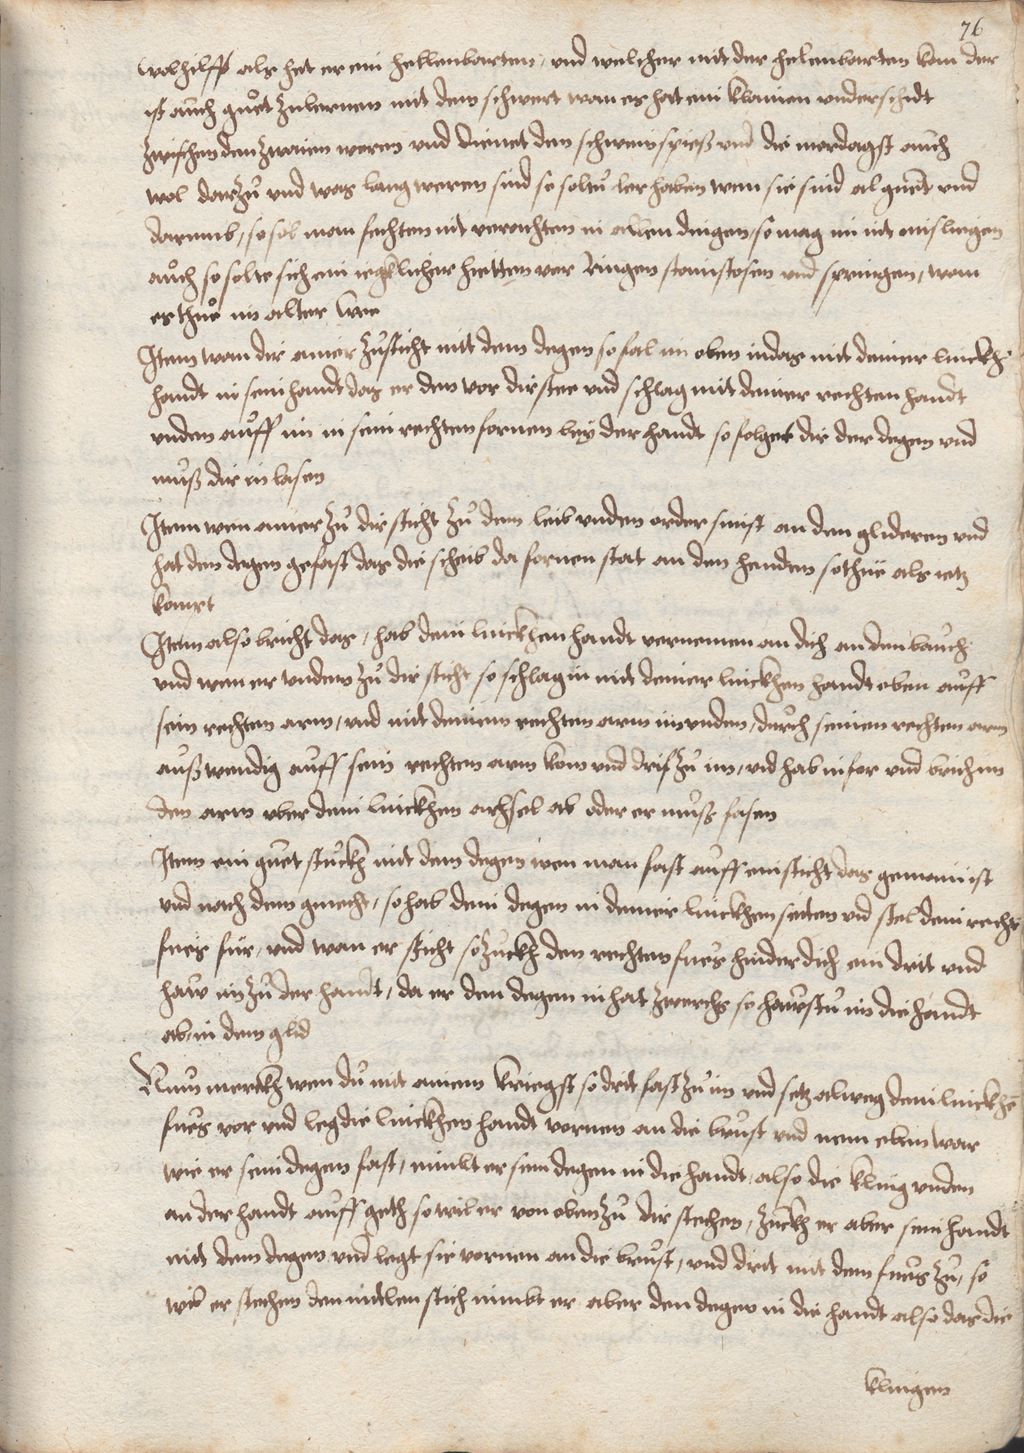 76
wol hilfft als het er ein hellenbarten, und welcher mit der helenbarten kan der
ist auch guet zulernen mit dem schwert wan es hat ein klainen underschidt
zwischen den zwaien weren und dienet dem schweinspiess und die mordagst auch
wol darzu und was lang weren sind so soltu ler haben wem sie sind al guet und
darumb, so sol man fechten nit verachten in allen dingen, so mag im nit mislingen
auch so solte sich ein iegklicher hietten vor Ringen stainstosen und springen, wan
es thue im alter wee
Item wan dir ainer zusticht mit dem degen so fal im oben in das mit deiner linckhen
handt in sein handt das er den vor dir stee und schlag mit deiner rechten handt
unden auff im in sein rechten fornen bey der handt so folget dir der degen und
muss dir in lasen
Item wen ainer zu dir sticht zu dem leib unden oder sunst an den glideren und
hat den degen gefast das die scheib da fornen stat an den henden so thue als ietz
komt
Item also bricht das, hab dein linckhen handt vernemen an dich an den bauch
und wen er unden zu dir sticht so schlag im mit deiner linckhen handt oben auff
sein rechten arm, und mit deinem rechten arm im unden, durch seinen rechten arm
ausswendig auff sein rechten arm kom und drit zu im, und hab in for und brich im
den arm uber dein linckhen achsel ab oder er muoss fasen
Item ein guet stuckh mit dem degen wen man fast auff ein sticht das gemain ist
und nach dem gmecht, so hab dein degen in deiner linckhen seiten und stel dein rechten
fues für, und wan er sticht so zuckh den rechten fues hinder dich ein drit und
haw im zu der handt, da er den degen in hat zwerchs so hawstu im die handt
ab, in dem glid
Nun merckh wen du mit ainem kriegst so drit fast zu im und setz alweg dein linckhen
fues vor und leg die linckhen handt vornen an die brust und nem eben war
wie er sein degen fast, nimbt er sein degen in die handt, also die kling unden
an der handt auff geth so wil er von oben zu dir stechen, zuckh er aber sein handt
mit dem degen und legt sie vornen an die brust, und drit mit dem fues zu, so
wil er stechen den mitlen stich nimbt er aber den degen in die handt also das die
klingen